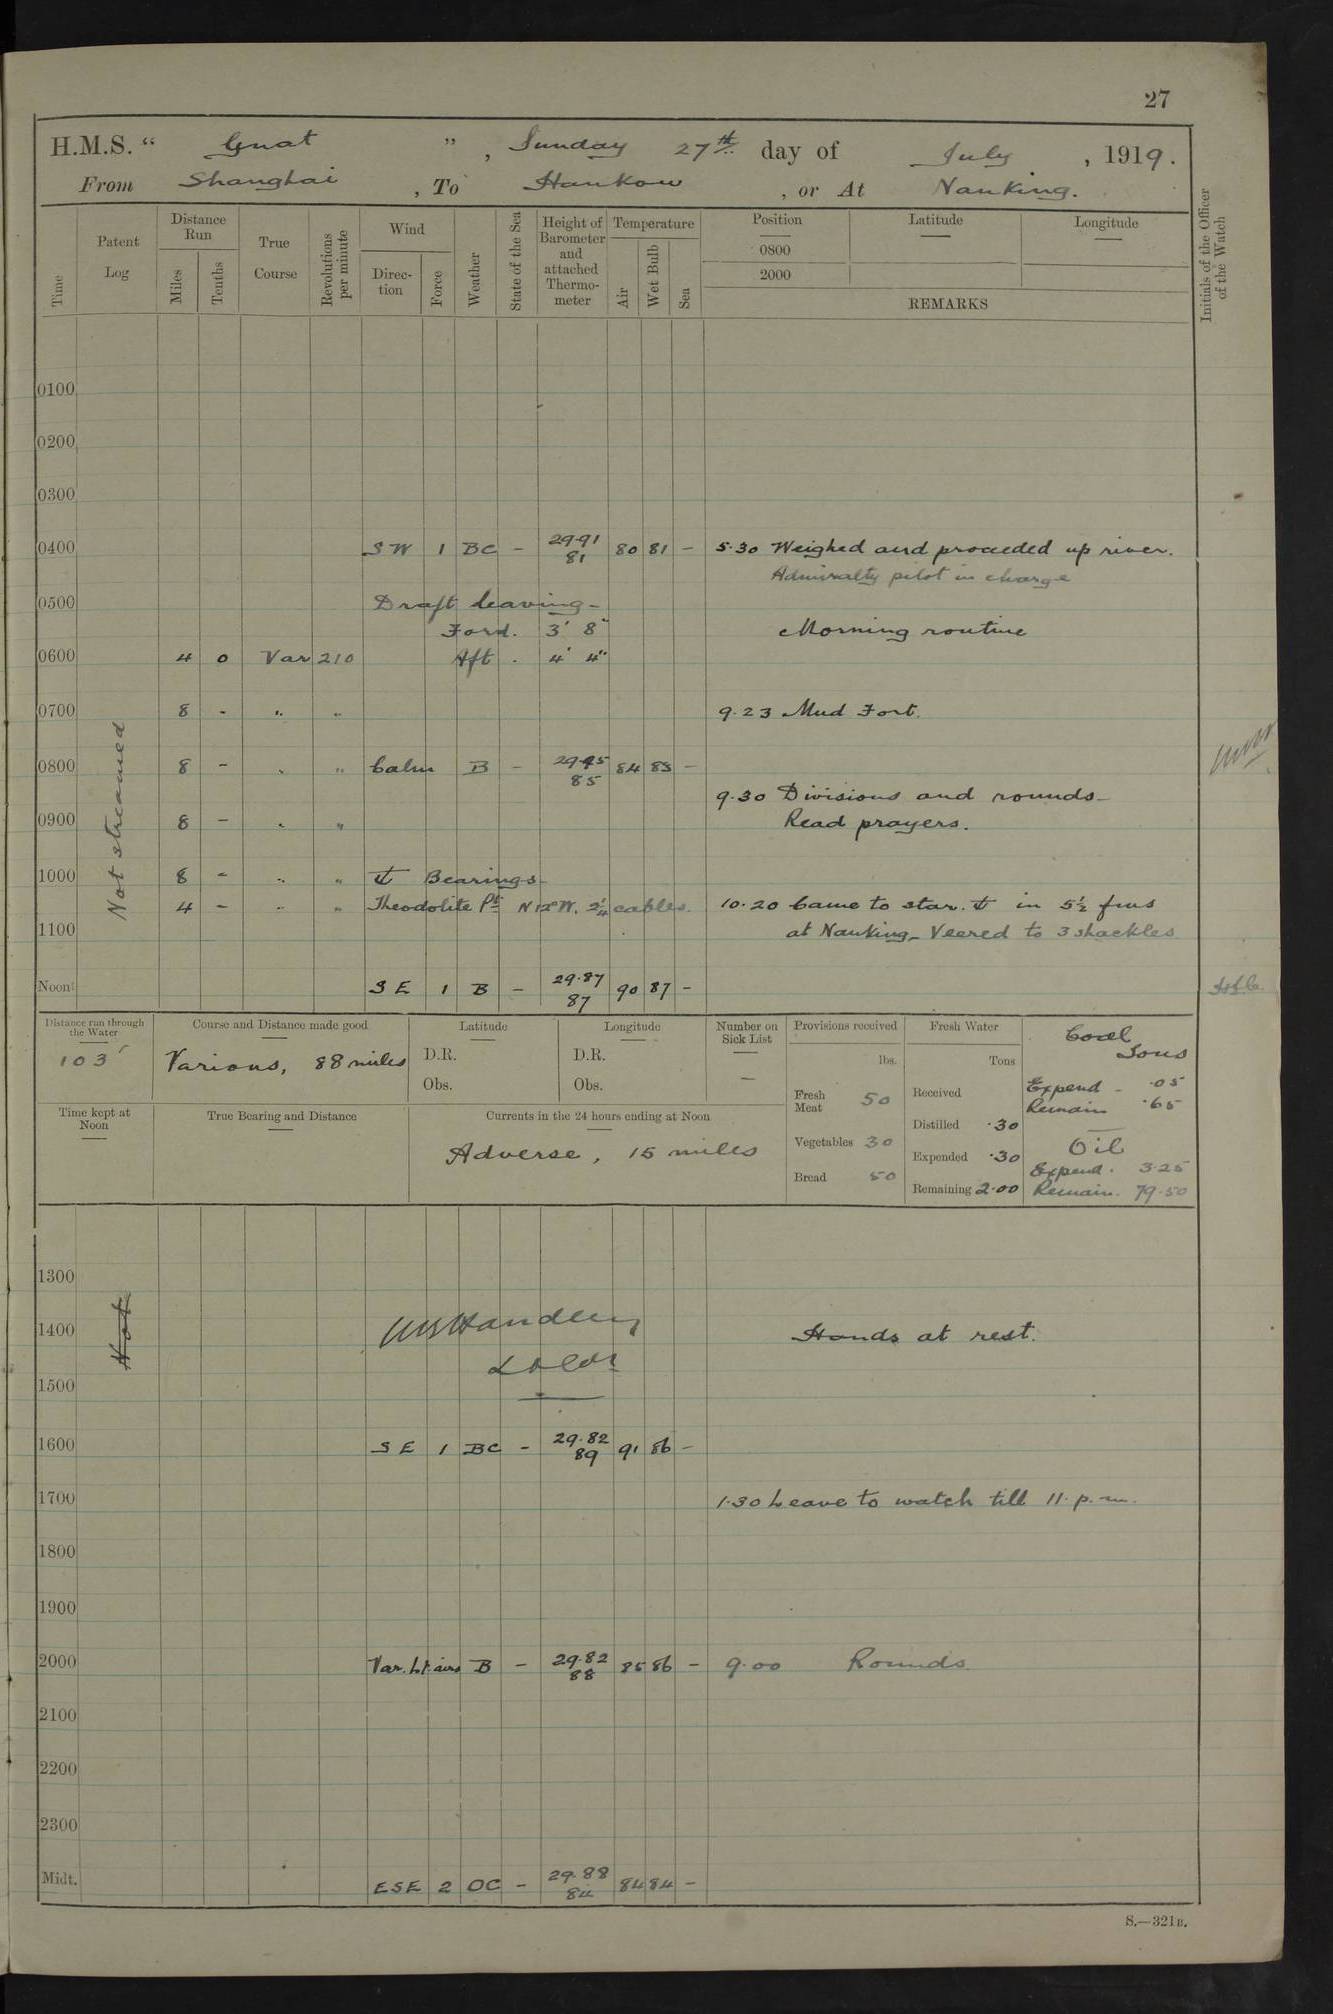 27
H.M.S. “ Gnat ” , Sunday 27th day of July , 1919.
From Shanghai , To Hankow , or At Nanking.
Time
Patent Log
Distance Run
Miles
Tenths
True Course
Revolutions per minute
Wind
Direc-tion
Force
Weather
State of the Sea
Height of Barometer and attached Thermo-meter
Temperature
Air
Wet Bulb
Sea
Position
Latitude
Longitude
0800
2000
REMARKS
Initials of the Officer of the Watch
0100
0200
0300
0400 SW 1 BC - 29.91 81 80 81 - 5.30 Weighed and proceeded up river.
Admiralty pilot in charge
0500 Draft leaving -
Ford. 3' 8" Morning routine
0600 4 0 Var 210 Aft . 4' 4"
0700 8 - " " 9.23 Mud Fort.
0800 8 - " " Calm B - 29.45 85 84 83 -
9.30 Divisions and rounds -
0900 8 - " " Read prayers.
Not streamed
1000 8 - " " ⚓ Bearings -
4 - " " Theodolite Pt N 12° W. 2¼ cables. 10.20 Came to star. ⚓ in 5½ fms
1100 at Nanking - Veered to 3 shackles
Noon SE 1 B - 29.87 87 90 87 -
Distance run through the Water
103'
Course and Distance made good
Various, 88 miles
Latitude
D.R.
Obs.
Longitude
D.R.
Obs.
Number on Sick List
-
Provisions received
lbs.
Fresh Meat 50
Vegetables 30
Bread 50
Fresh Water
Tons
Received
Distilled .30
Expended .30
Remaining 2.00
Coal
Tons
Expend - .05
Remain .65
Oil
Expend. 3.25
Remain. 79.50
Time kept at Noon
True Bearing and Distance
Currents in the 24 hours ending at Noon
Adverse, 15 miles
1300
Not
1400 Hands at rest.
1500
1600 SE 1 BC - 29.82 89 91 86 -
1700 1.30 Leave to watch till 11. p.m.
1800
1900
2000 Var. Lt. airs B - 29.82 88 85 86 - 9.00 Rounds.
2100
2200
2300
Midt. ESE 2 OC - 29.88 84 84 84 -
S.—321B.